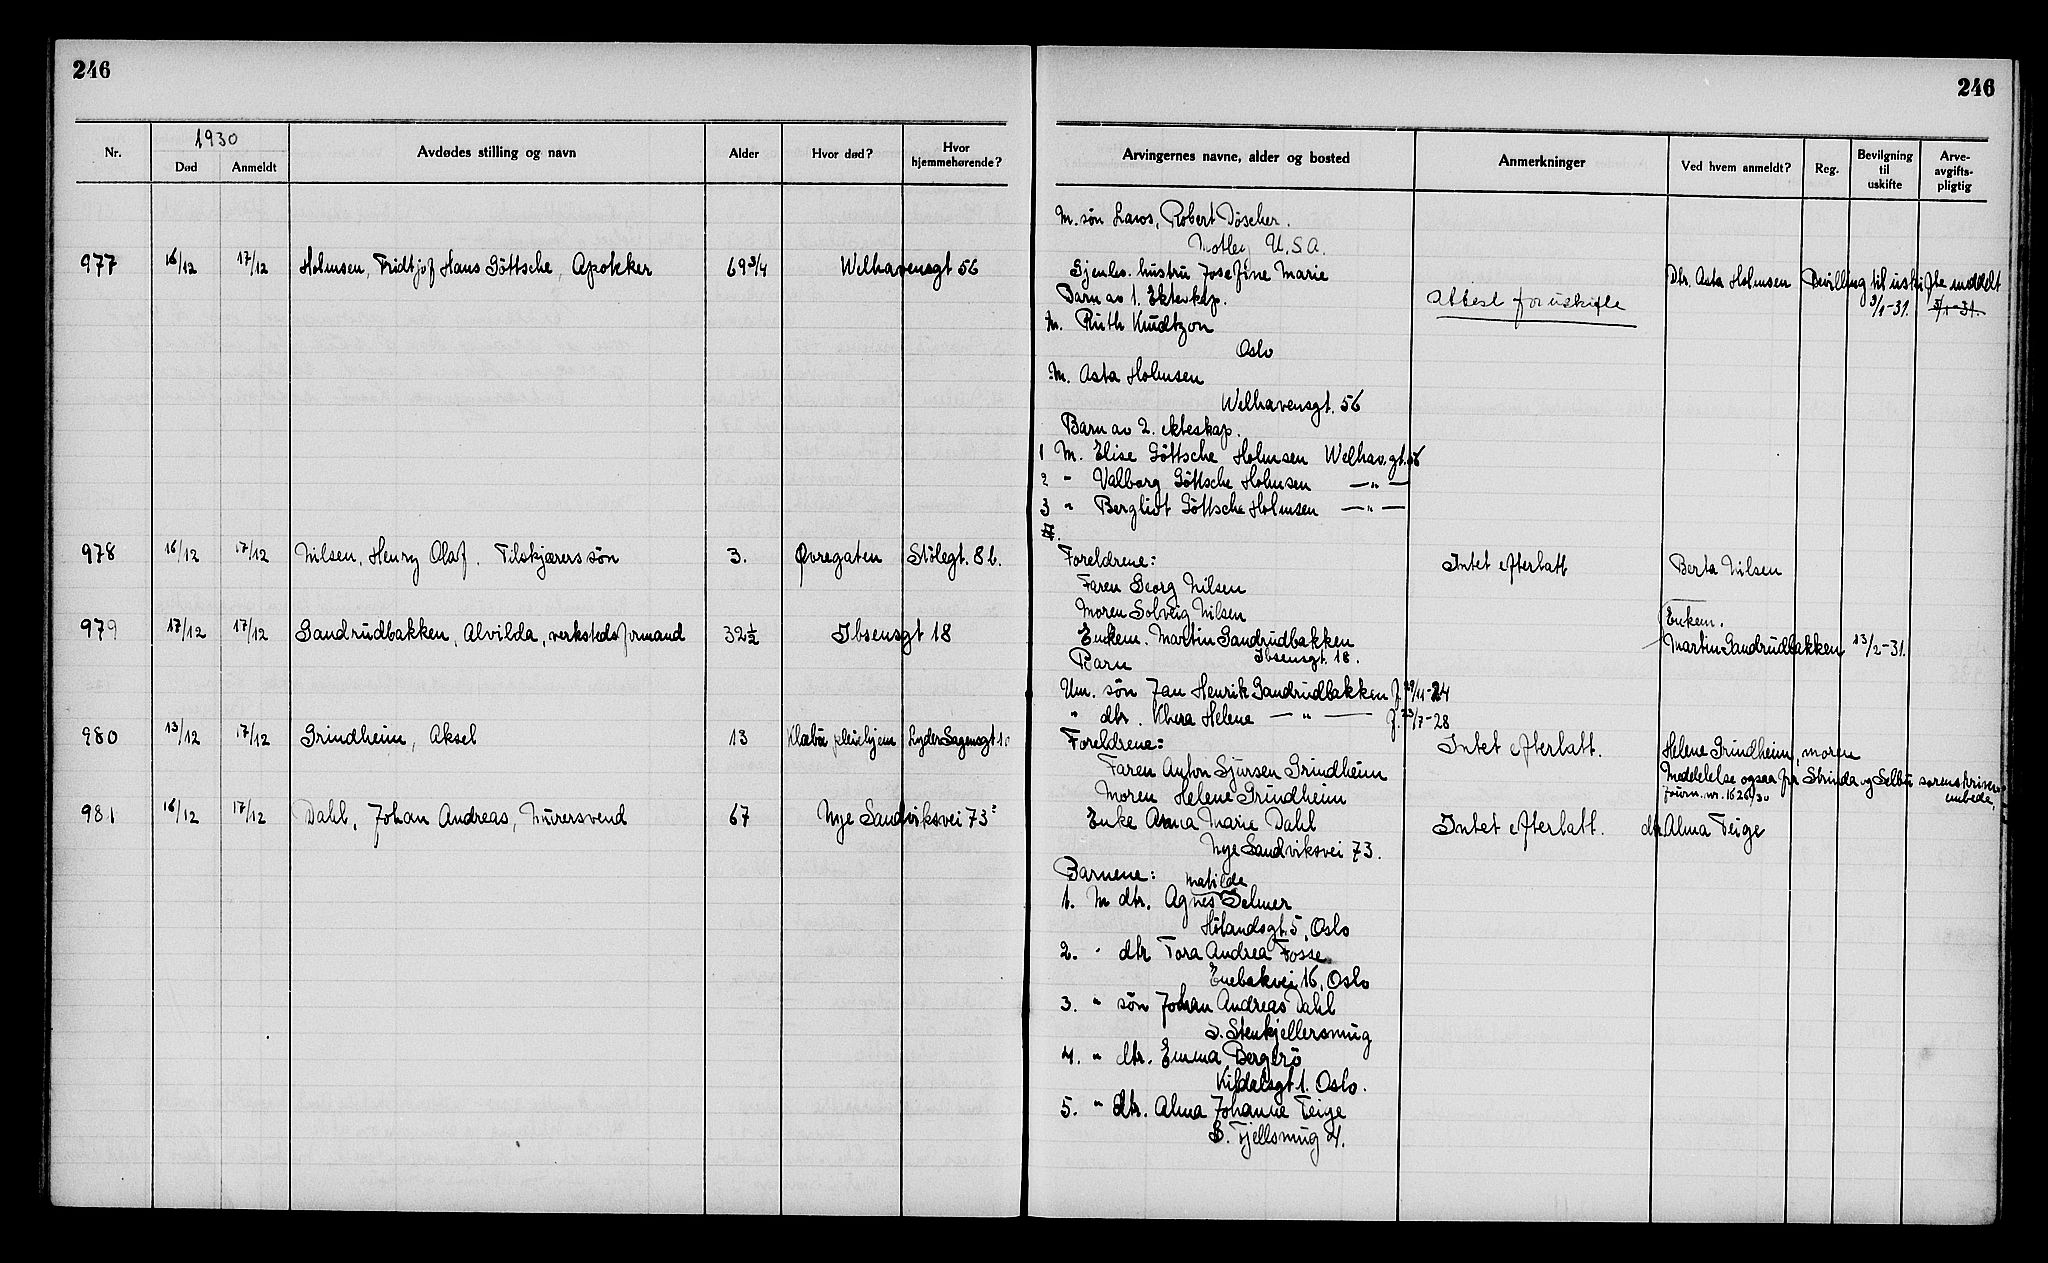 246
246
Nr.
1930
Død
Anmeldt
Avdødes stilling og navn
Alder
Hvor død?
Hvor hjemmehørende?
Arvingernes navne, alder og bosted
Anmerkninger
Ved hvem anmeldt?
Reg.
Bevilgning til uskifte
Arve-avgifts-pligtig
M. søn Laws, Robert Döscher.
Motley U.S.A.
977 16/12 17/12 Holmsen, Fridtjof Hans Göttsche, Apoteker 69 3/4 Welhavensgt 56
Gjenlev. hustru Josefine Marie
Dtr. Asta Holmsen Bevilling til uskifte meddelt
3/1-31. 3/1-31.
Barn av 1. Ekteskap.
attest for uskifte
M. Ruth Knudtzon
Oslo
M. Asta Holmsen
Welhavensgt. 56
Barn av 2. ekteskap.
1 M. Elise Göttsche Holmsen Welhav.gt. 56
2 " Valborg Göttsche Holmsen — " —
3 " Bergliot Göttsche Holmsen — " —
978 16/12 17/12 Nilsen, Henry Olaf. Filskjærers søn 3. Øvregaten Stølegt. 8 b.
Foreldrene: Intet efterlatt Berta Nilsen
Faren Georg Nilsen
Moren Solveig Nilsen
979 17/12 17/12 Sandrudbakken, Alvilda, verkstedsformand 32 1/2 Ibsensgt 18
Enkem. Martin Sandrudbakken
Ibsensgt. 18.
Enkem.
Martin Sandrudbakken 13/2-31.
Barn
Um. søn Jan Henrik Sandrudbakken f. 29/11-24
" dtr. Helene — " — f. 23/7-28
980 13/12 17/12 Grindheim, Aksel 13 Klæbu pleiehjem Lyder Sagensgt 10
Foreldrene: Intet efterlatt. Helene Grindheim, moren
Faren Anton Sjursen Grindheim
Moren Helene Grindheim
Meddelelse ogsaa fra Strinda og Selbu sorenskriverembede,
Journ. nr. 1626/30
981 16/12 17/12 Dahl, Johan Andreas, Murersvend 67 Nye Sandviksvei 73
Enke Anna Marie Dahl Intet efterlatt. dtr Alma Teige
Nye Sandviksvei 73.
Barnene:
Matilde
1. M dtr. Agnes Selmer
Hølandsgt. 5, Oslo
2. " dtr Tora Andrea Fosse
Enebakvei 16, Oslo
3. " søn Johan Andreas Dahl
Ø. Stenkjellersmug
4. " dtr. Emma Bergbrø
Kildalsgt 1. Oslo.
5. " dtr. Alma Johanne Teige
S. Fjellsmug 4.